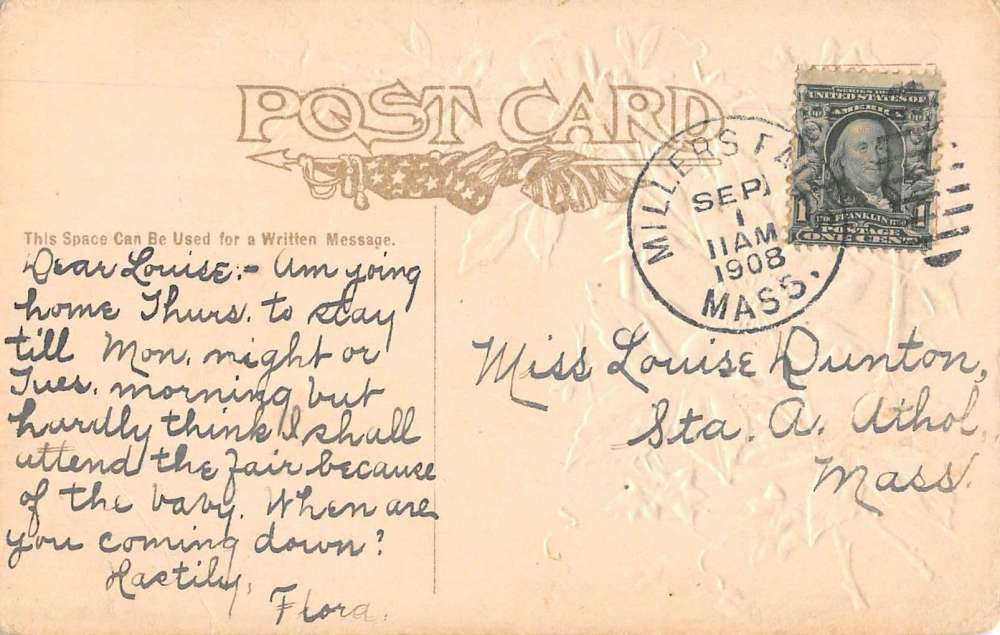 POST CARD
This Space Can Be Used for a Written Message.
Dear Louise:- Am going
home Thurs. to stay
till Mon. night or
Tues. morning but
hardly think I shall
attend the fair because
of the baby. When are
you coming down?
Hastily,
Flora.
MILLERS FA
SEP
1
11 AM
1908
MASS.
SERIES 1902
UNITED STATES OF
AMERICA
1 FRANKLIN 1
POSTAGE
ONE CENT
Miss Louise Dunton,
Sta. A. Athol,
Mass.